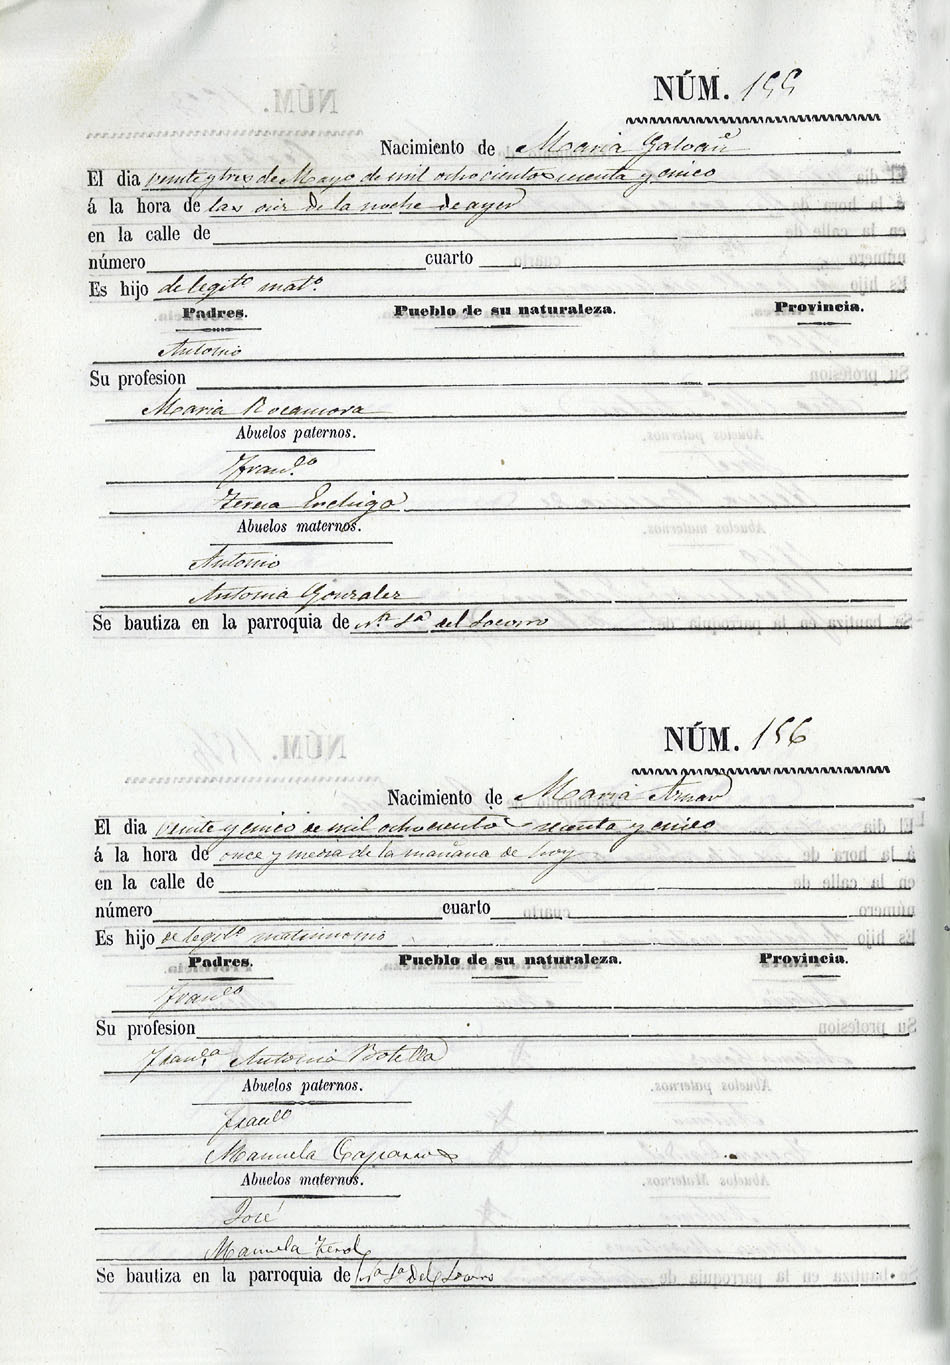 NÚM. 155
Nacimiento de Maria Galvañ
El dia veinte y tres de Mayo de mil ochocientos sesenta y cinco
á la hora de las diez de la noche de ayer
en la calle de
número cuarto
Es hijo de legit.o mat.o
Padres. Pueblo de su naturaleza. Provincia.
Antonio
Su profesion
Maria Rocamora
Abuelos paternos.
Fran.co
Teresa
Abuelos maternos.
Antonio
Antonia Gonzalez
Se bautiza en la parroquia de N.a S.a del Socorro
NÚM. 156
Nacimiento de Maria Aznar
El dia veinte y cinco de mil ochocientos sesenta y cinco
á la hora de once y media de la mañana de hoy
en la calle de
número cuarto
Es hijo de legit.o matrimonio
Padres. Pueblo de su naturaleza. Provincia.
Fran.co
Su profesion
Fran.ca Antonia Botella
Abuelos paternos.
Fran.co
Manuela
Abuelos maternos.
José
Manuela Terol
Se bautiza en la parroquia de N.a S.a del Socorro